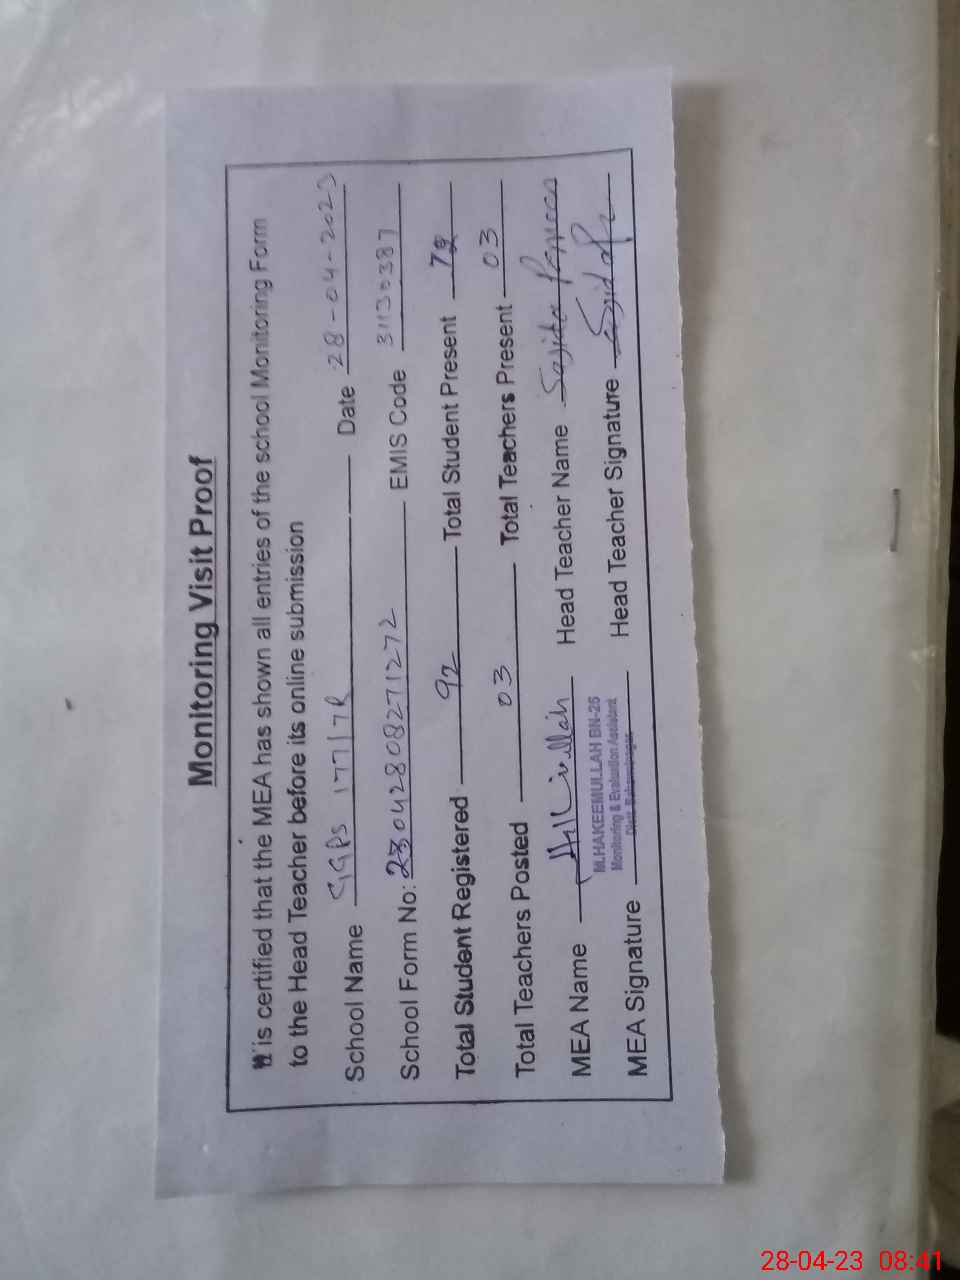 Monitoring Visit Proof
It is certified that the MEA has shown all entries of the school Monitoring Form
to the Head Teacher before its online submission
School Name GGPS 177/7R Date 28-04-2023
School Form No: 23042808271272 EMIS Code 31130387
Total Student Registered 92 Total Student Present
Total Teachers Posted 03 Total Teachers Present 03
MEA Name Head Teacher Name Sajida Parveen
M.HAKEEMULLAH BN-25
Monitoring & Evaluation Assistant
MEA Signature Head Teacher Signature
28-04-23 08:41